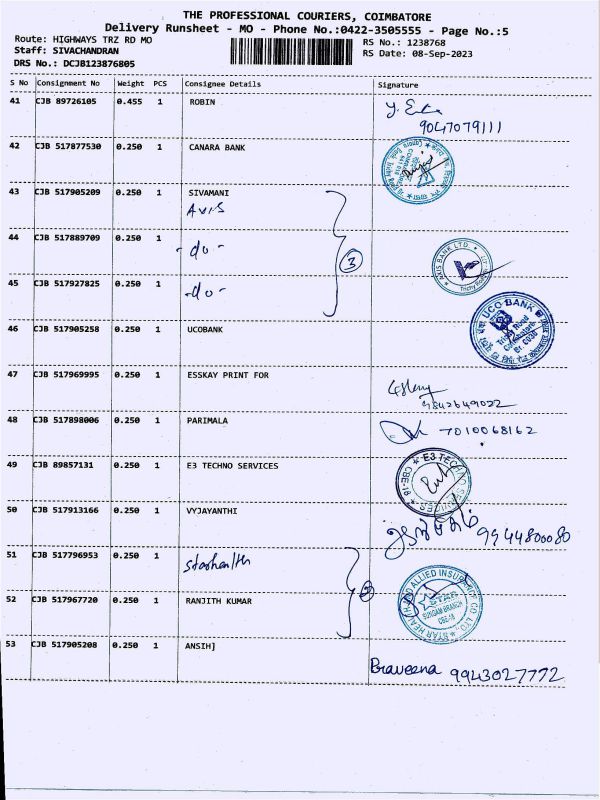 THE PROFESSIONAL COURIERS, COIMBATORE
Delivery Runsheet - MO - Phone No.:0422-3505555 - Page No.:5
Route: HIGHWAYS TRZ RD MO
RS No.: 1238768
Staff: SIVACHANDRAN
RS Date: 08-Sep-2023
DRS No.: DCJB123876805
S No Consignment No Weight PCS Consignee Details Signature
41 CJB 89726105 0.455 1 ROBIN
9047079111
42 CJB 517877530 0.250 1 CANARA BANK
43 CJB 517905209 0.250 1 SIVAMANI
Axis
44 CJB 517889709 0.250 1 -do- 3
AXIS BANK LTD.
45 CJB 517927825 0.250 1 -do-
UCO BANK
Trichy Road
Coimbatore
46 CJB 517905258 0.250 1 UCOBANK
47 CJB 517969995 0.250 1 ESSKAY PRINT FOR
9842649022
48 CJB 517898006 0.250 1 PARIMALA 7010068162
49 CJB 89857131 0.250 1 E3 TECHNO SERVICES
E3 TECHNO SERVICES CBE-18
50 CJB 517913166 0.250 1 VYJAYANTHI
9944800080
51 CJB 517796953 0.250 1 Starhealth
52 CJB 517967720 0.250 1 RANJITH KUMAR
STAR HEALTH AND ALLIED INSURANCE CO LTD
STAR
SUNGAM BRANCH
CBE-18
53 CJB 517905208 0.250 1 ANSIH]
Braveena 9943027772